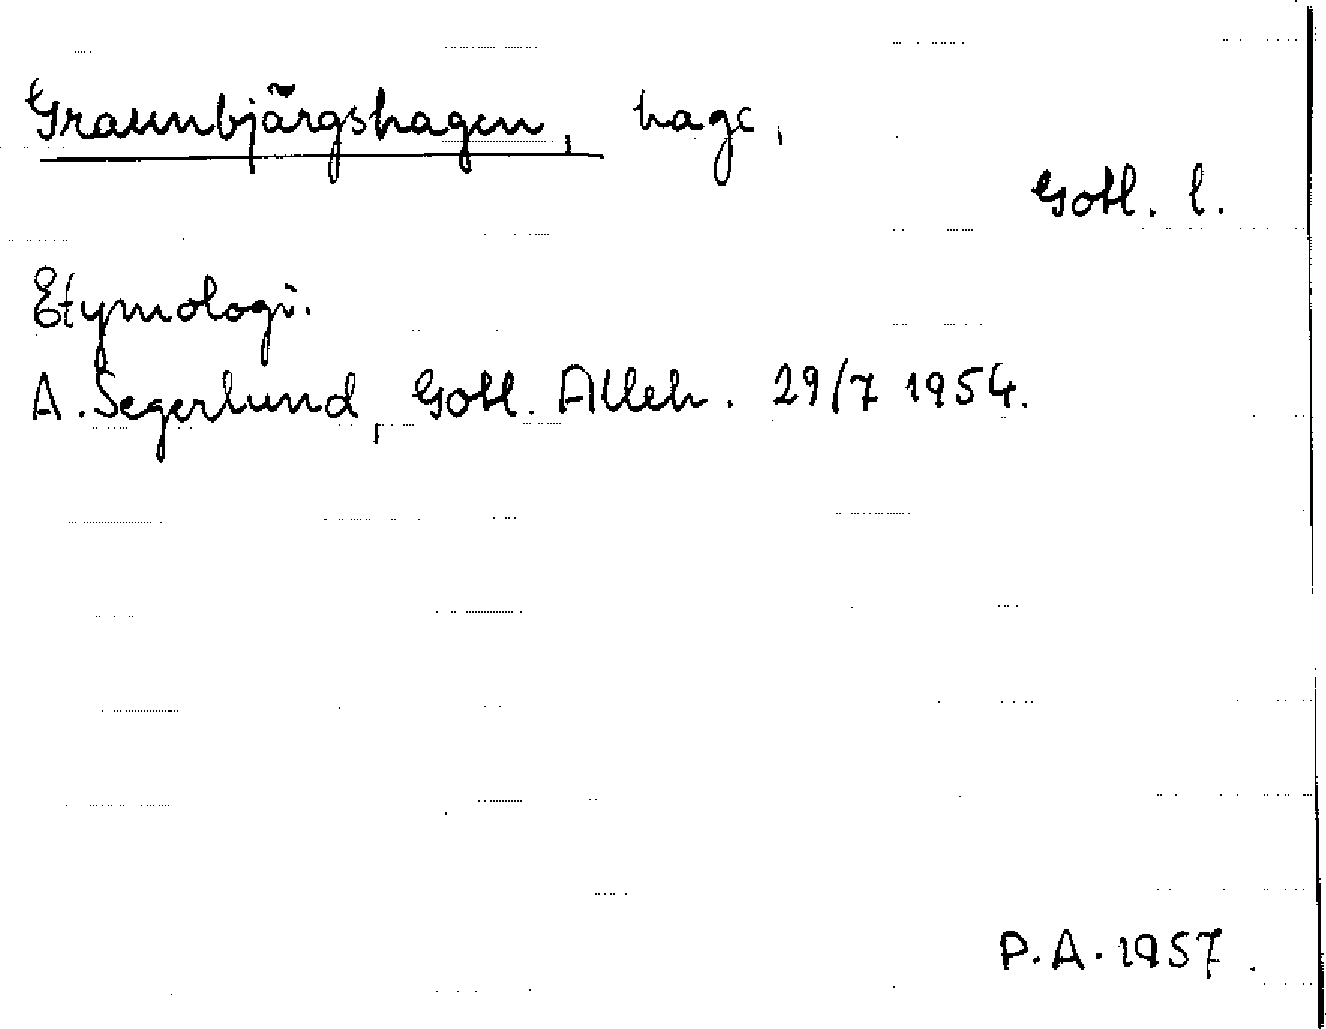 Graunbjärgshagen, hage,
Gotl. l.
Etymologi.
A. Segerlund, Gotl. Alleh. 29/7 1954.
P.A. 1957.